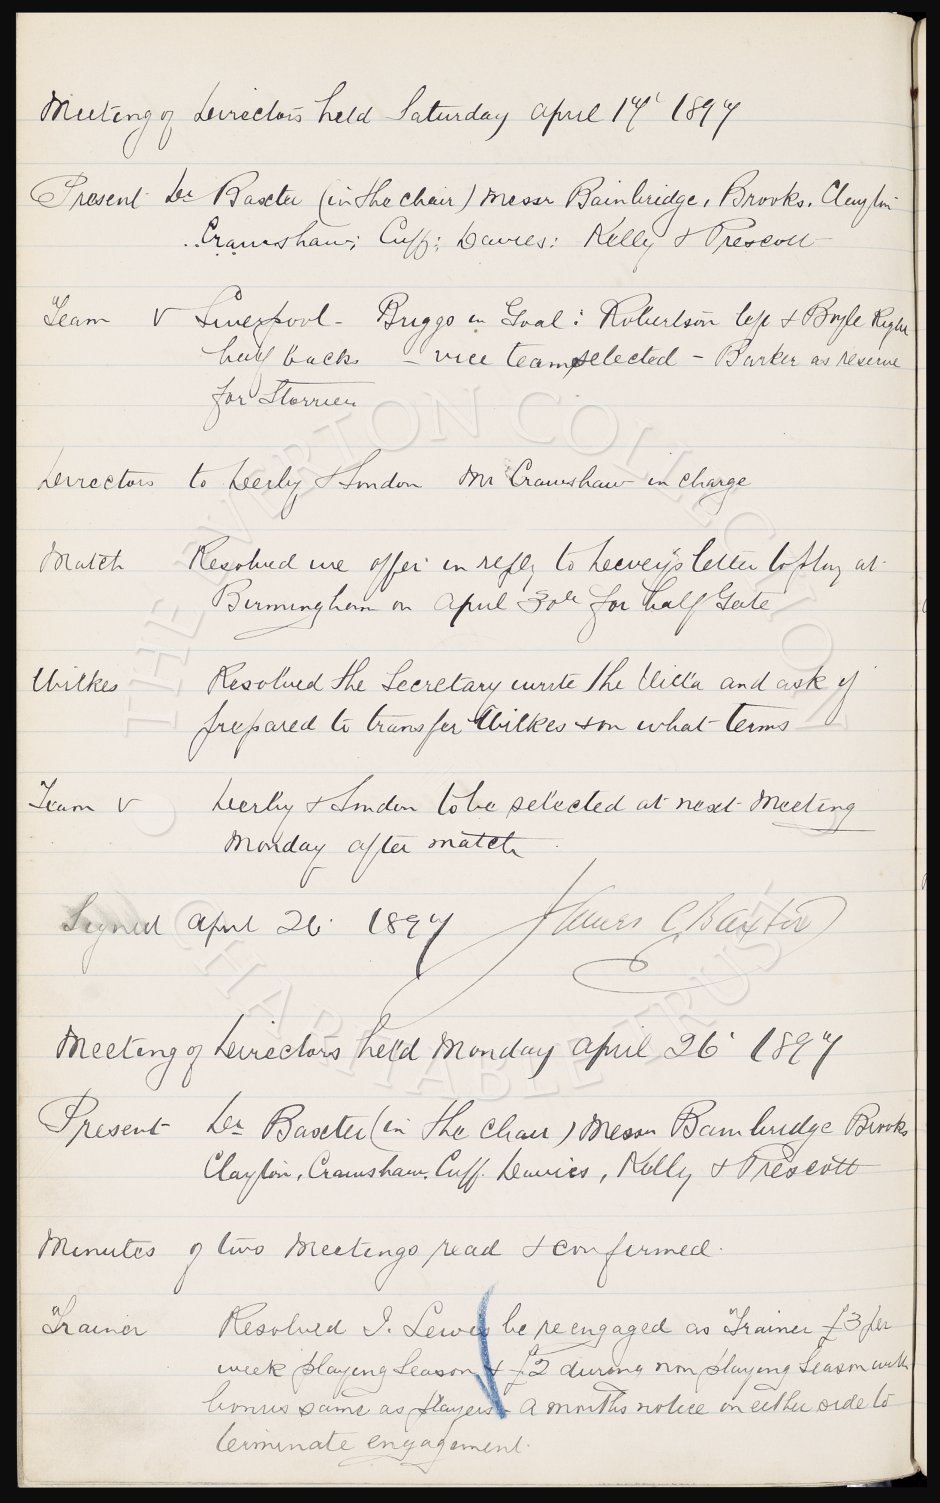 Meeting of Directors held Saturday April 17' 1897
Present Dr Baxter (in the chair) Messr Bainbridge, Brooks, Clayton
Crawshaw; Cuff; Davies; Kelly & Prescott
Team v Liverpool - Briggs in Goal: Robertson left & Boyle Right
half backs - vice team selected - Barker as reserve
for Storrier
Directors to Derby & London Mr Crawshaw in charge
Match Resolved we offer in reply to letter to play at
Birmingham on April 30th for half Gate
Wilkes Resolved the Secretary write the Villa and ask if
prepared to transfer Wilkes & on what terms
Team v Derby & London to be selected at next Meeting
Monday after match
Signed April 26' 1897 James C Baxter
Meeting of Directors held Monday April 26' 1897
Present Dr Baxter (in the chair) Messr Bainbridge Brooks
Clayton, Crawshaw, Cuff, Davies, Kelly & Prescott
Minutes of two Meetings read & confirmed.
Trainer Resolved J. Lewis be reengaged as Trainer £3 per
week playing Season & £2 during non playing Season with
bonus same as players - a months notice on either side to
terminate engagement.
© THE EVERTON COLLECTION
CHARITABLE TRUST